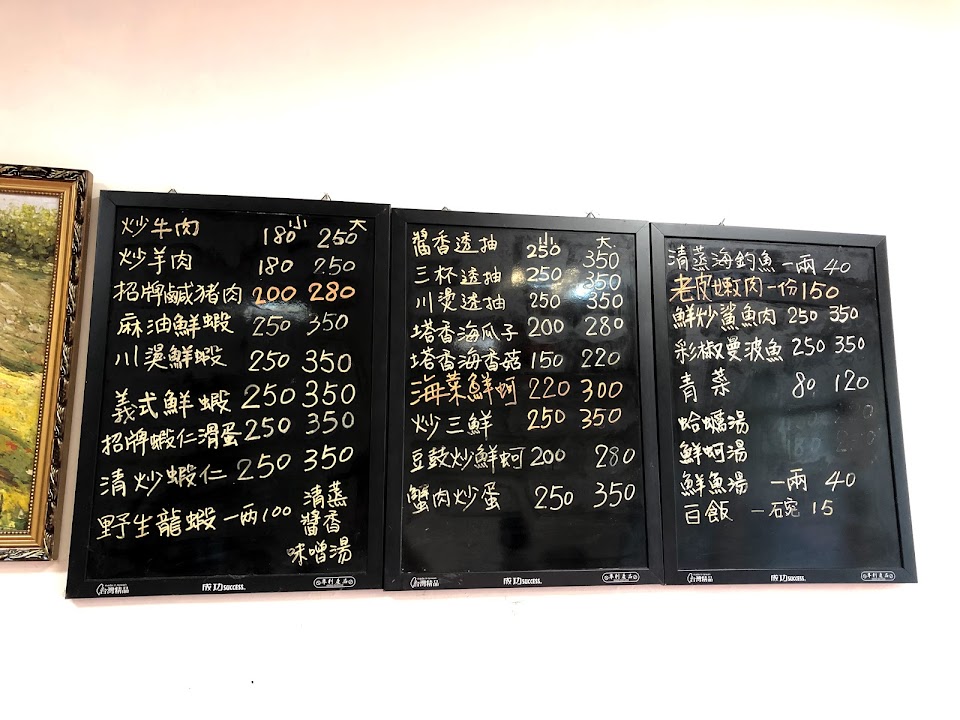 小 大
炒牛肉 180 250
炒羊肉 180 250
招牌鹹猪肉 200 280
麻油鮮蝦 250 350
川燙鮮蝦 250 350
義式鮮蝦 250 350
招牌蝦仁滑蛋 250 350
清炒蝦仁 250 350
野生龍蝦 一两100 清蒸
醬香
味噌湯
台灣精品 成功 SUCCESS. 專利產品
小 大
醬香透抽 250 350
三杯透抽 250 350
川燙透抽 250 350
塔香海瓜子 200 280
塔香海香菇 150 220
海菜鮮蚵 220 300
炒三鮮 250 350
豆鼓炒鮮蚵 200 280
蟹肉炒蛋 250 350
台灣精品 成功 SUCCESS. 專利產品
清蒸海釣魚 一兩 40
老皮嫩肉 一份 150
鮮炒鯊魚肉 250 350
彩椒曼波魚 250 350
青菜 80 120
蛤蠣湯
鮮蚵湯
鮮魚湯 一兩 40
白飯 一碗 15
台灣精品 成功 SUCCESS. 專利產品